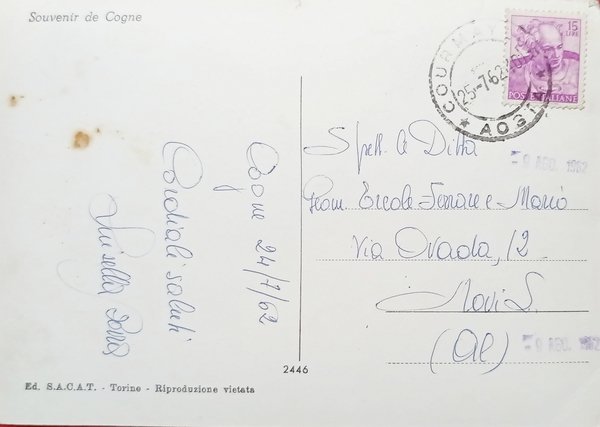 Souvenir de Cogne
15
LIRE
POSTE ITALIANE
COURMAYEUR
25-7-62
AOSTA
Cogne 24/7/62
Cordiali saluti
Spett. le Ditta
9 AGO. 1962
Geom. Ercole Ferrare e Mario
Via Ovada, 12
Novi L.
(Al)
9 AGO. 1962
2446
Ed. S.A.C.A.T. - Torino - Riproduzione vietata